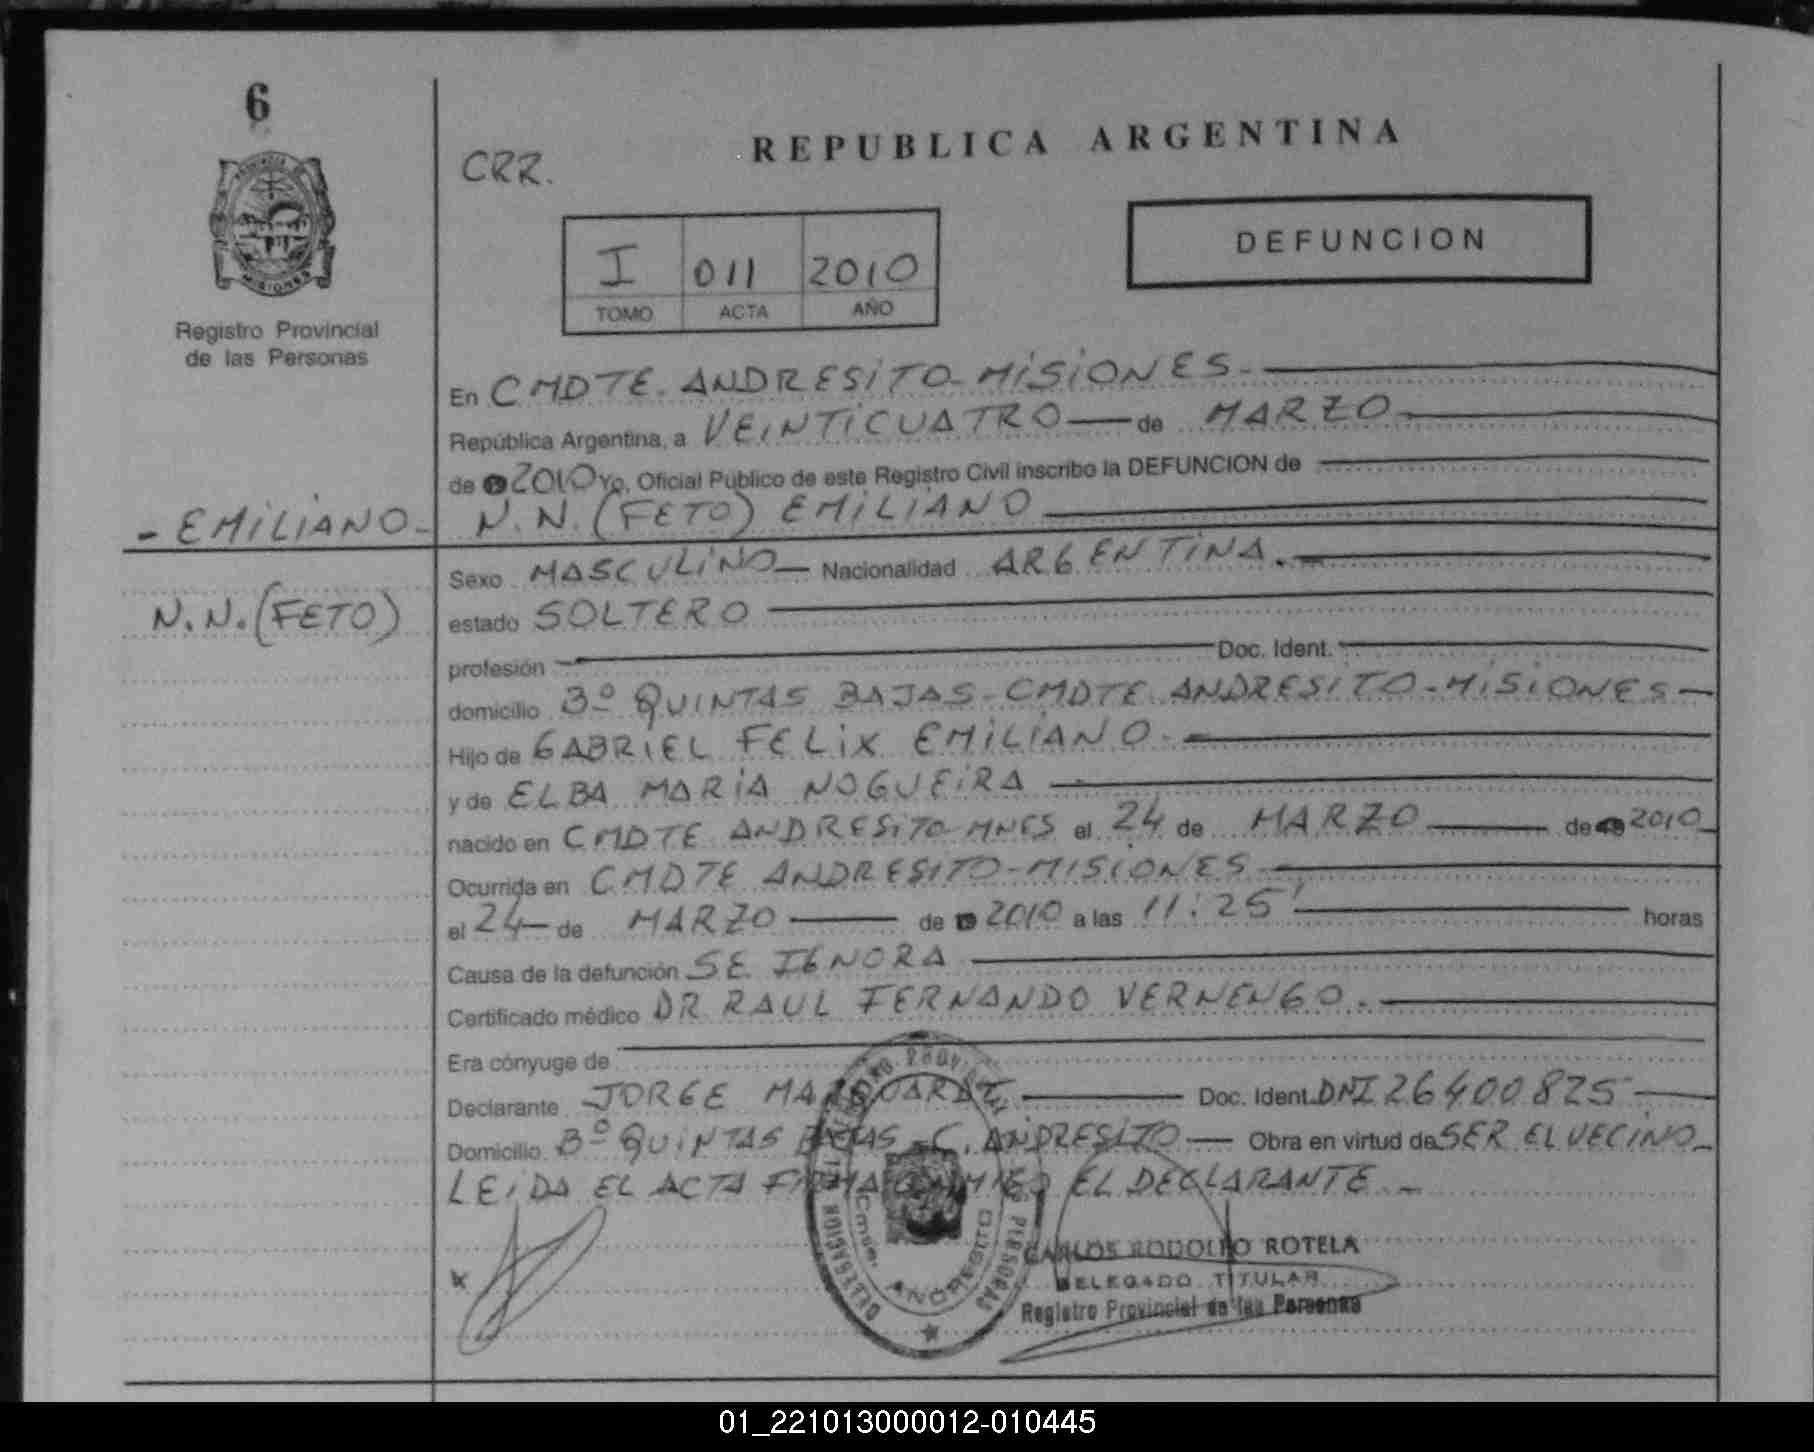 6
PROVINCIA DE
MISIONES
Registro Provincial
de las Personas
CRR.
REPUBLICA ARGENTINA
I 011 2010
TOMO ACTA AÑO
DEFUNCION
En CMDTE. ANDRESITO-MISIONES.
República Argentina, a VEINTICUATRO de MARZO
de 2010 Yo, Oficial Público de este Registro Civil inscribo la DEFUNCION de
- EMILIANO -
N.N. (FETO) EMILIANO
Sexo MASCULINO Nacionalidad ARGENTINA.
N.N. (FETO)
estado SOLTERO
profesión Doc. Ident.
domicilio Bº QUINTAS BAJAS-CMDTE ANDRESITO-MISIONES
Hijo de GABRIEL FELIX EMILIANO.
y de ELBA MARIA NOGUEIRA
nacido en CMDTE ANDRESITO-MNES el 24 de MARZO de 2010
Ocurrida en CMDTE ANDRESITO-MISIONES
el 24 de MARZO de 2010 a las 11:25' horas
Causa de la defunción SE IGNORA
Certificado médico DR RAUL FERNANDO VERNENGO.
Era cónyuge de
Declarante JORGE Doc. Ident. DNI 26400825
Domicilio Bº QUINTAS BAJAS - C. ANDRESITO Obra en virtud de SER EL VECINO
LEIDA EL ACTA FIRMA CONMIGO EL DECLARANTE.
DELEGACION
PERSONAS
ANDRESITO
CARLOS RODOLFO ROTELA
DELEGADO TITULAR
Registro Provincial de las Personas
01_221013000012-010445